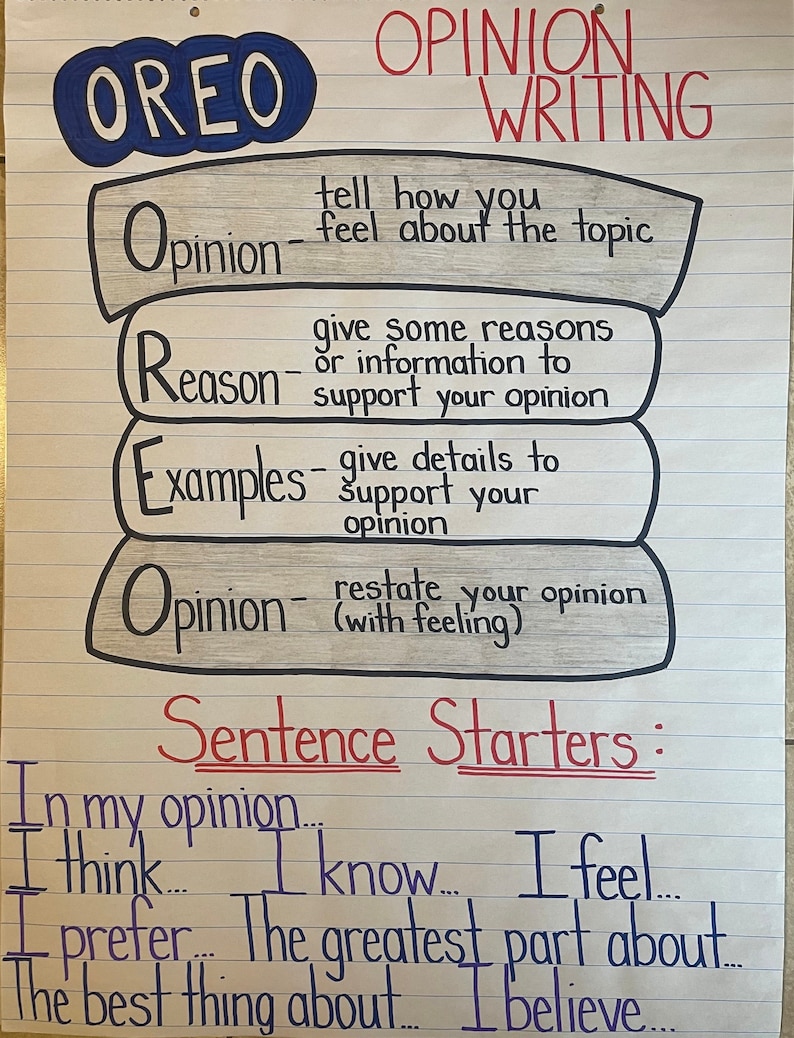 OREO
OPINION
WRITING
Opinion - tell how you
feel about the topic
Reason - give some reasons
or information to
support your opinion
Examples - give details to
support your
opinion
Opinion - restate your opinion
(with feeling)
Sentence Starters:
In my opinion...
I think... I know... I feel...
I prefer... The greatest part about...
The best thing about... I believe...